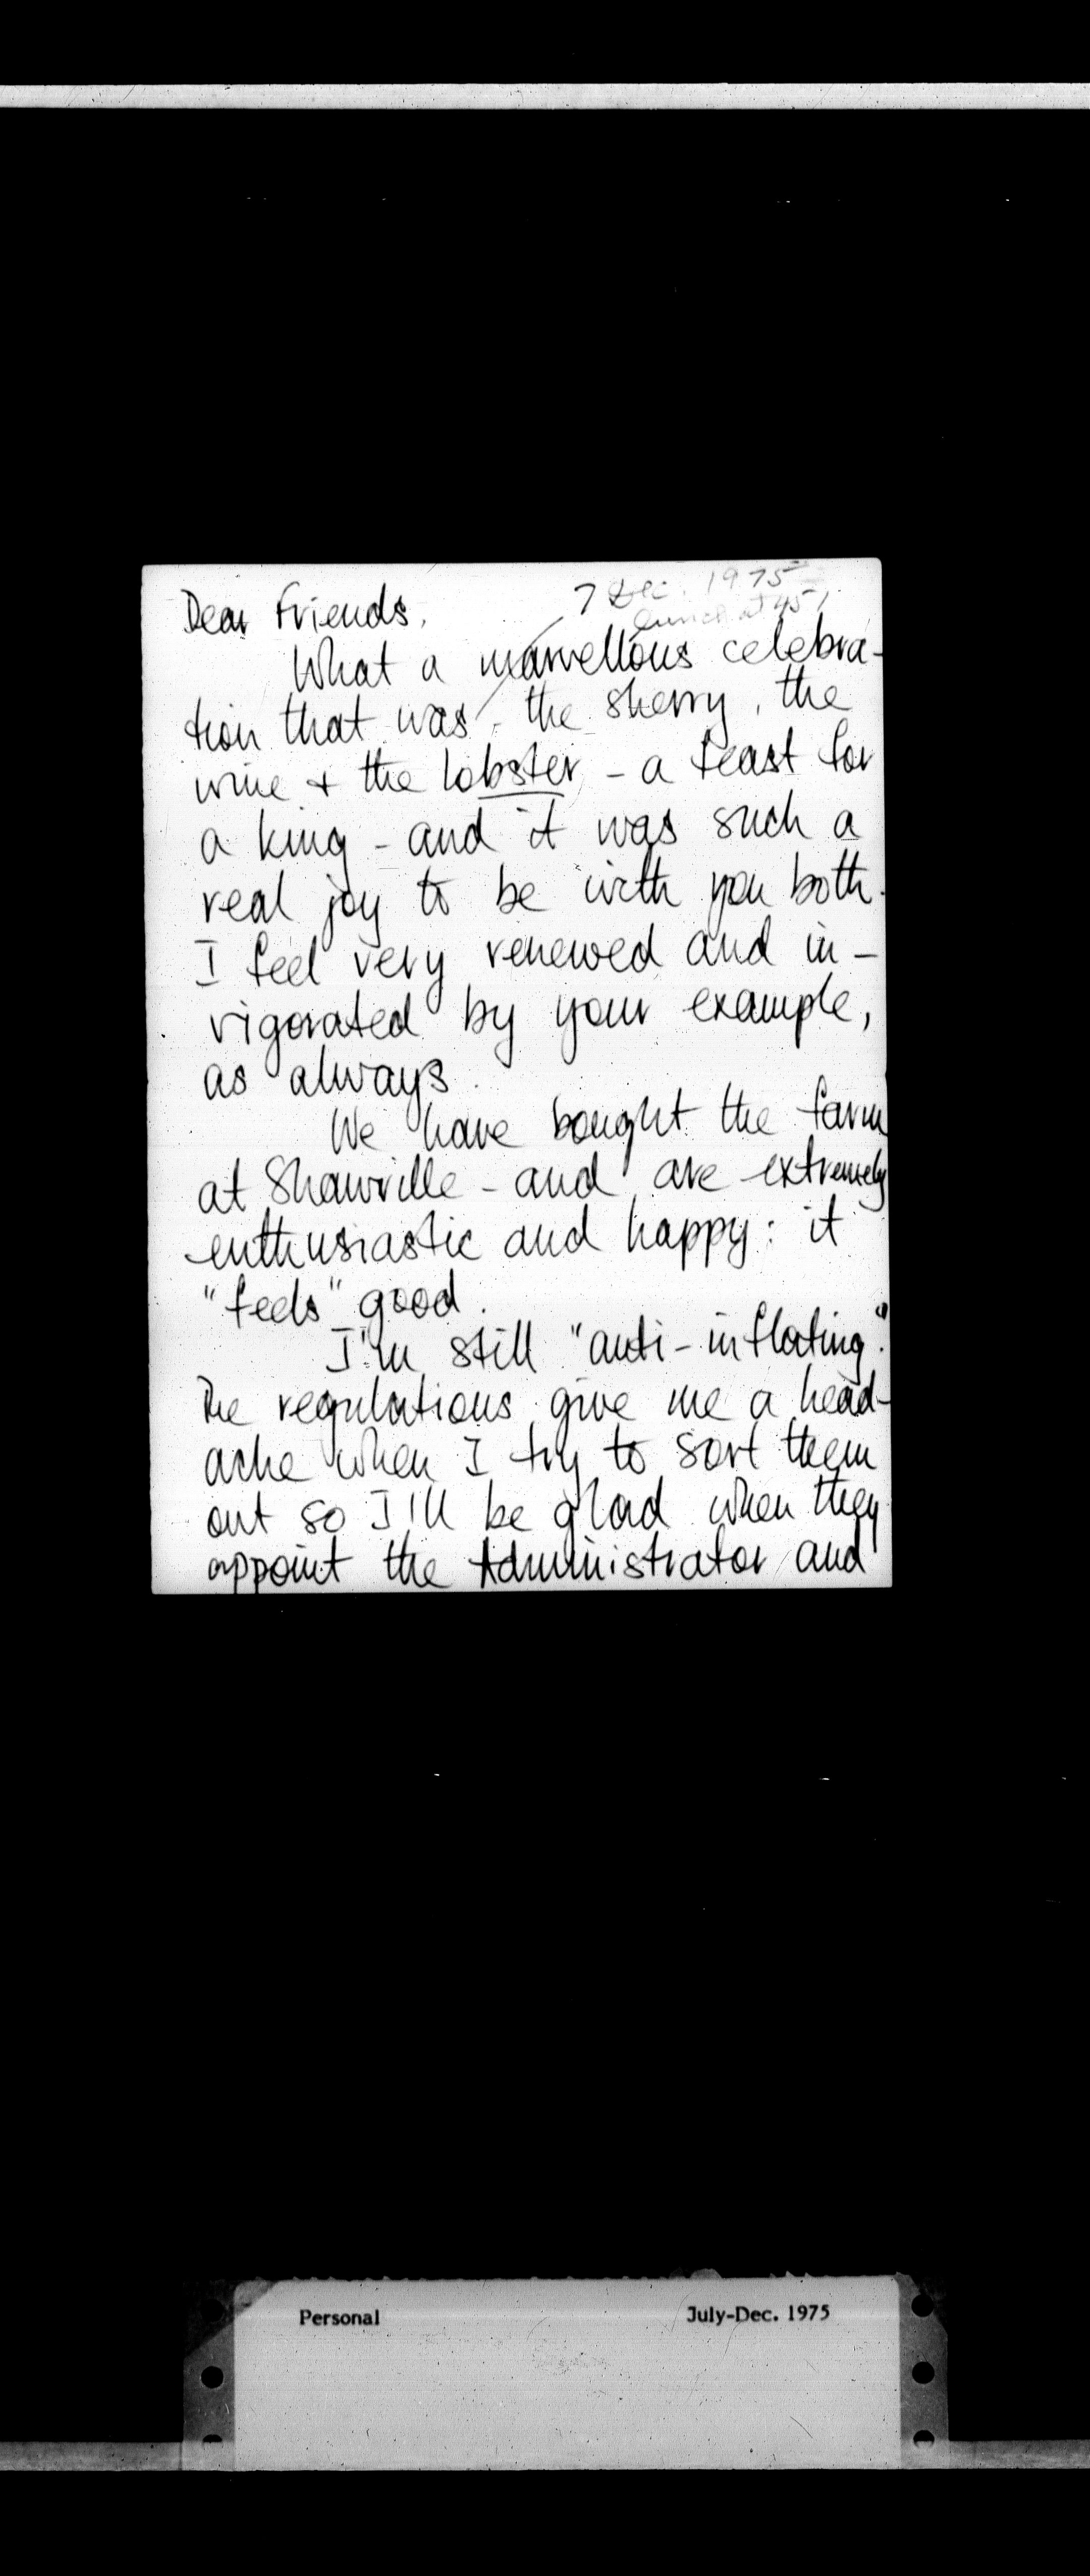 7 Dec. 1975
lunch at 451
Dear Friends,
What a marvellous celebra-
tion that was, the sherry, the
wine + the lobster, - a feast for
a king - and it was such a
real joy to be with you both.
I feel very renewed and in-
vigorated by your example,
as always.
We have bought the farm
at Shawville - and are extremely
enthusiastic and happy: it
"feels" good.
I'm still "anti-inflating".
The regulations give me a head-
ache when I try to sort them
out so I'll be glad when they
appoint the Administrator and
Personal July-Dec. 1975